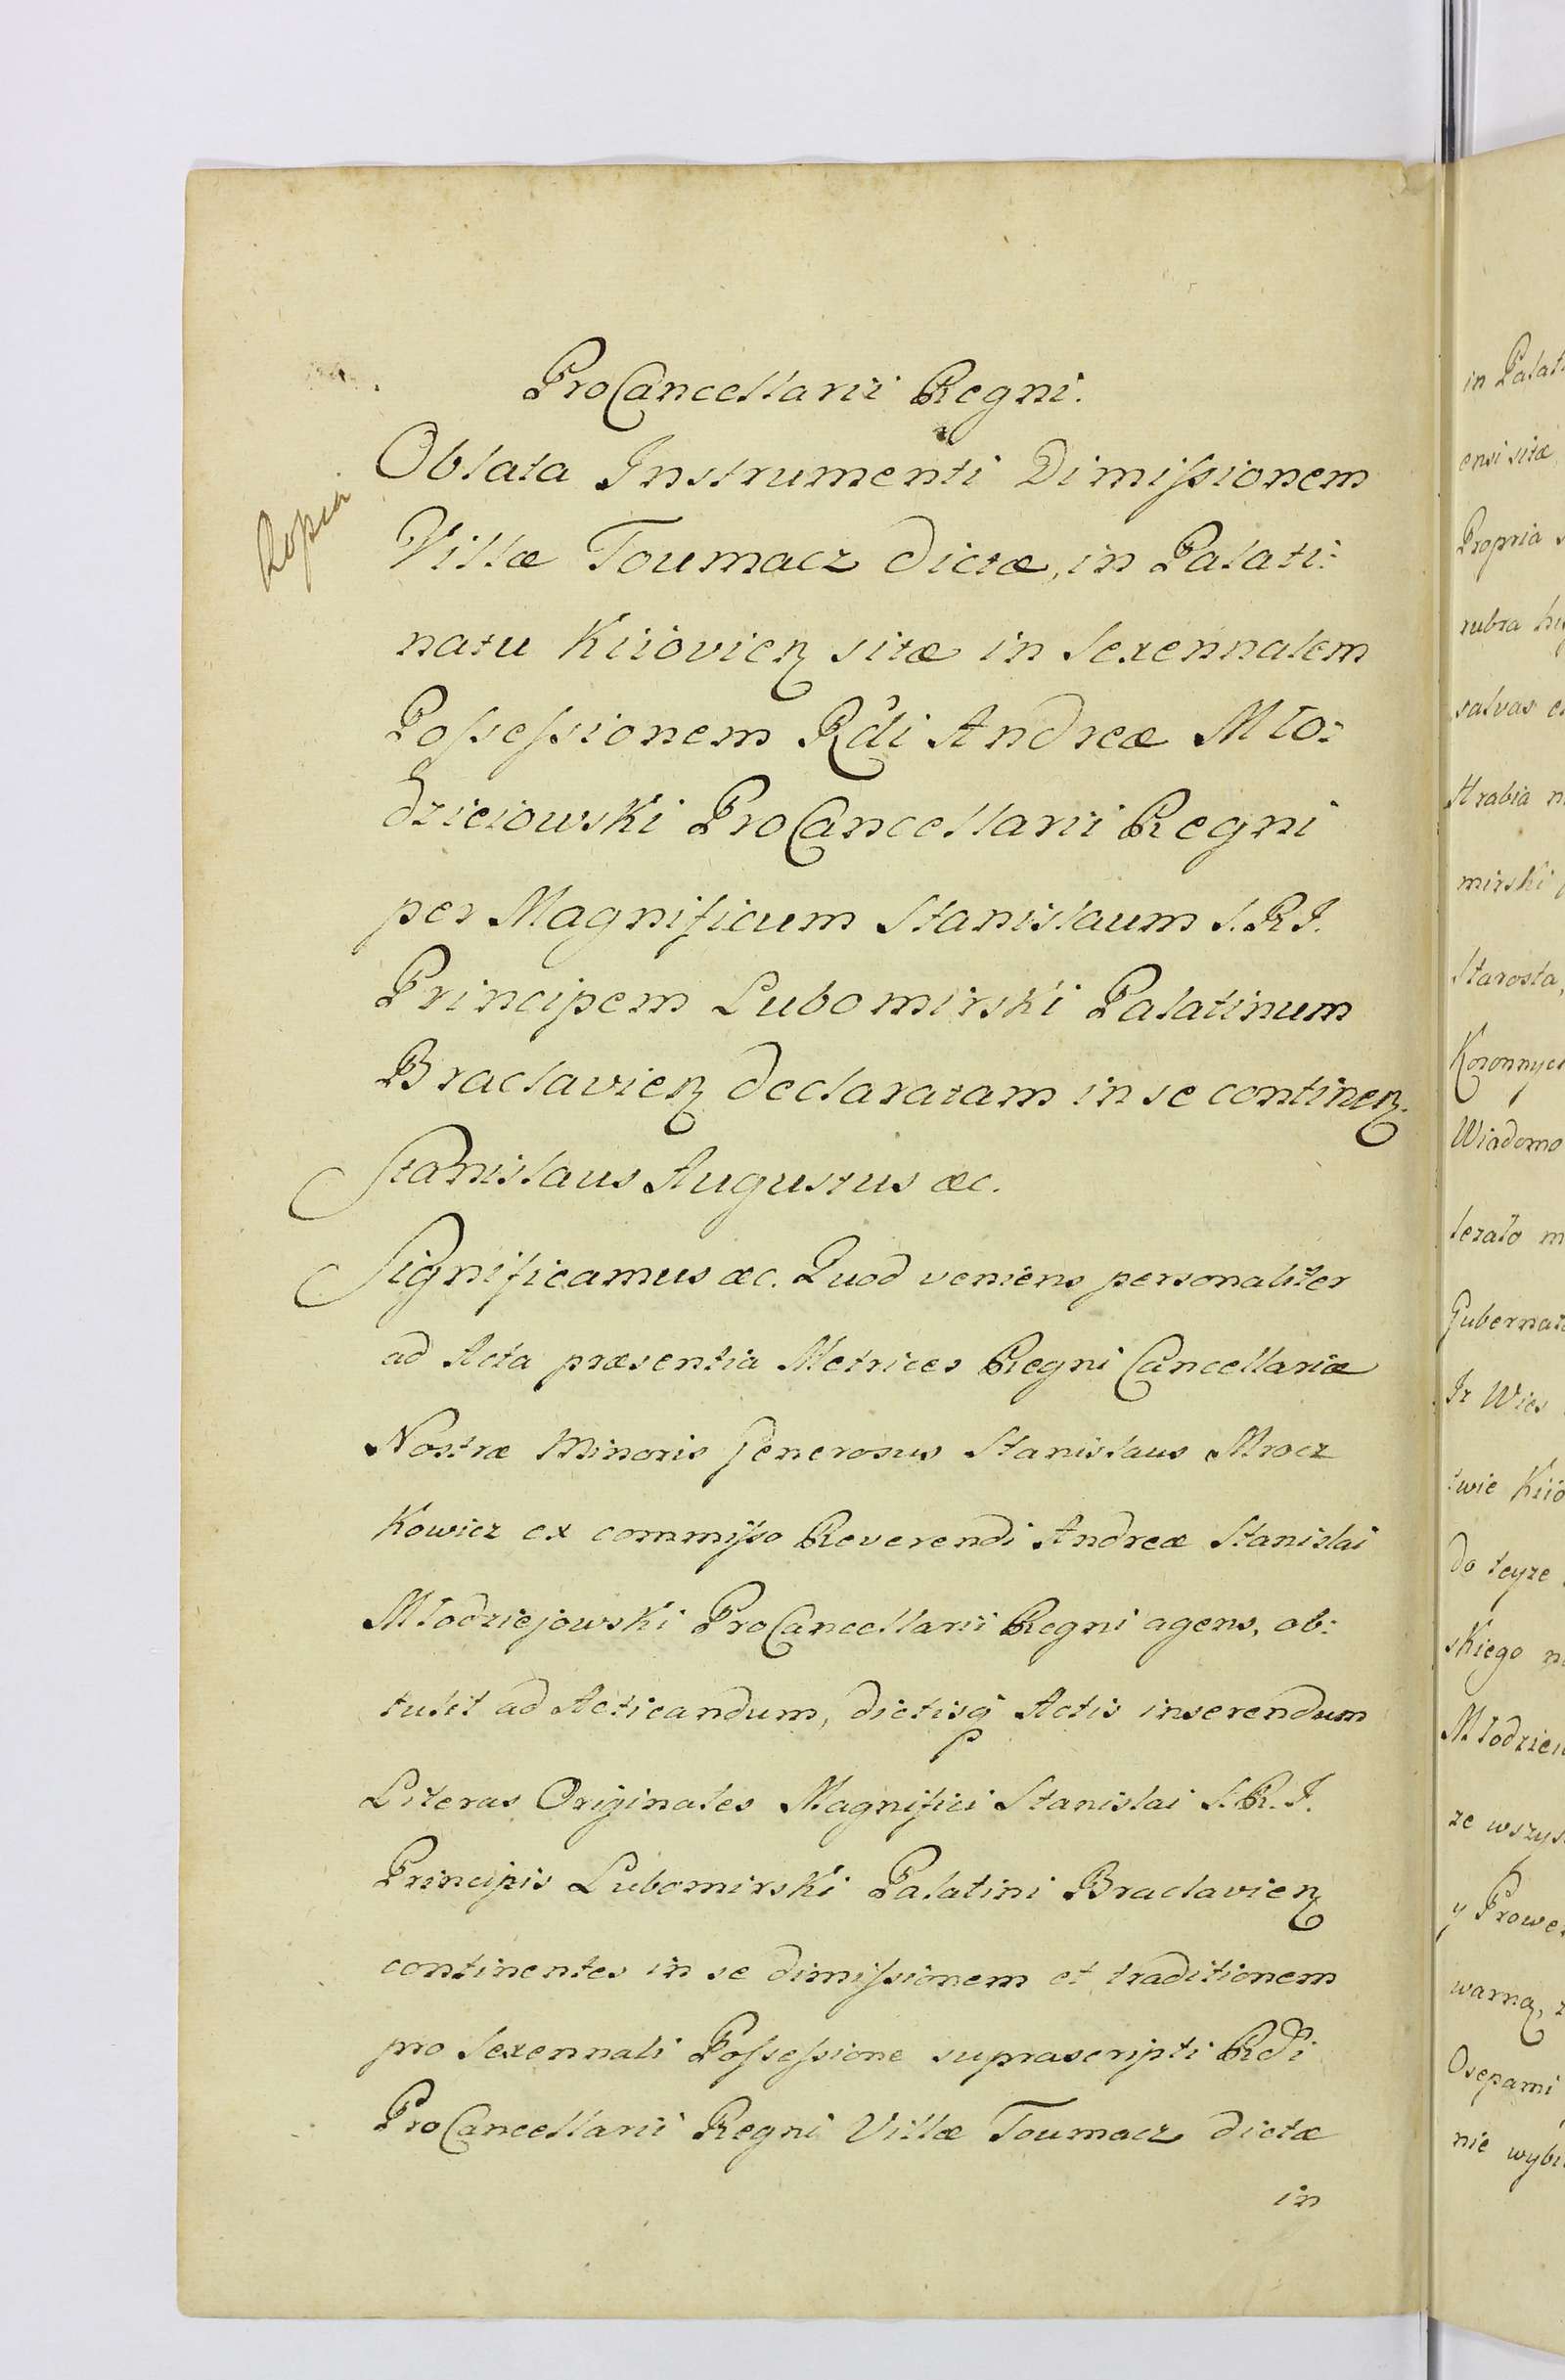 ProCancellarii Regni.
Kopia
Oblata Instrumenti Dimiſsionem
Villæ Toumacz dictæ, in Palati:
natu Kiiovien sitæ in Sexennalem
Poſseſsionem Rdi Andreæ Mło:
dzieiowski ProCancellarii Regni
per Magnificum Stanislaum S.R.I.
Principem Lubomirski Palatinum
Braclavien declaratam in se continen.
Stanislaus Augustus &c.
Significamus &c. Quod veniens personaliter
ad Acta præsentia Metrices Regni Cancellariæ
Nostræ Minoris Generosus Stanislaus Mrocz
kowicz ex commiſso Reverendi Andreæ Stanislai
Młodziejowski ProCancellarii Regni agens, ob:
tulit ad Acticandum, dictisq Actis inserendum
Literas Originales Magnifici Stanislai S.R.I.
Principis Lubomirski Palatini Braclavien
continentes in se dimiſsionem et traditionem
pro Sexennali Poſseſsione suprascripti Rdi
ProCancellarii Regni Villæ Toumacz dictæ
in
in Palat
ensi sitæ
Propria
rubra
salvas
Hrabia
mirski
Starosta,
Koronnych
Wiadomo
leżało
Gubernat
Iż Wies
twie Kiio
do teyże
skiego
Młodziei
ze wszys
y Prowe
warną,
Osepami
nie wybi